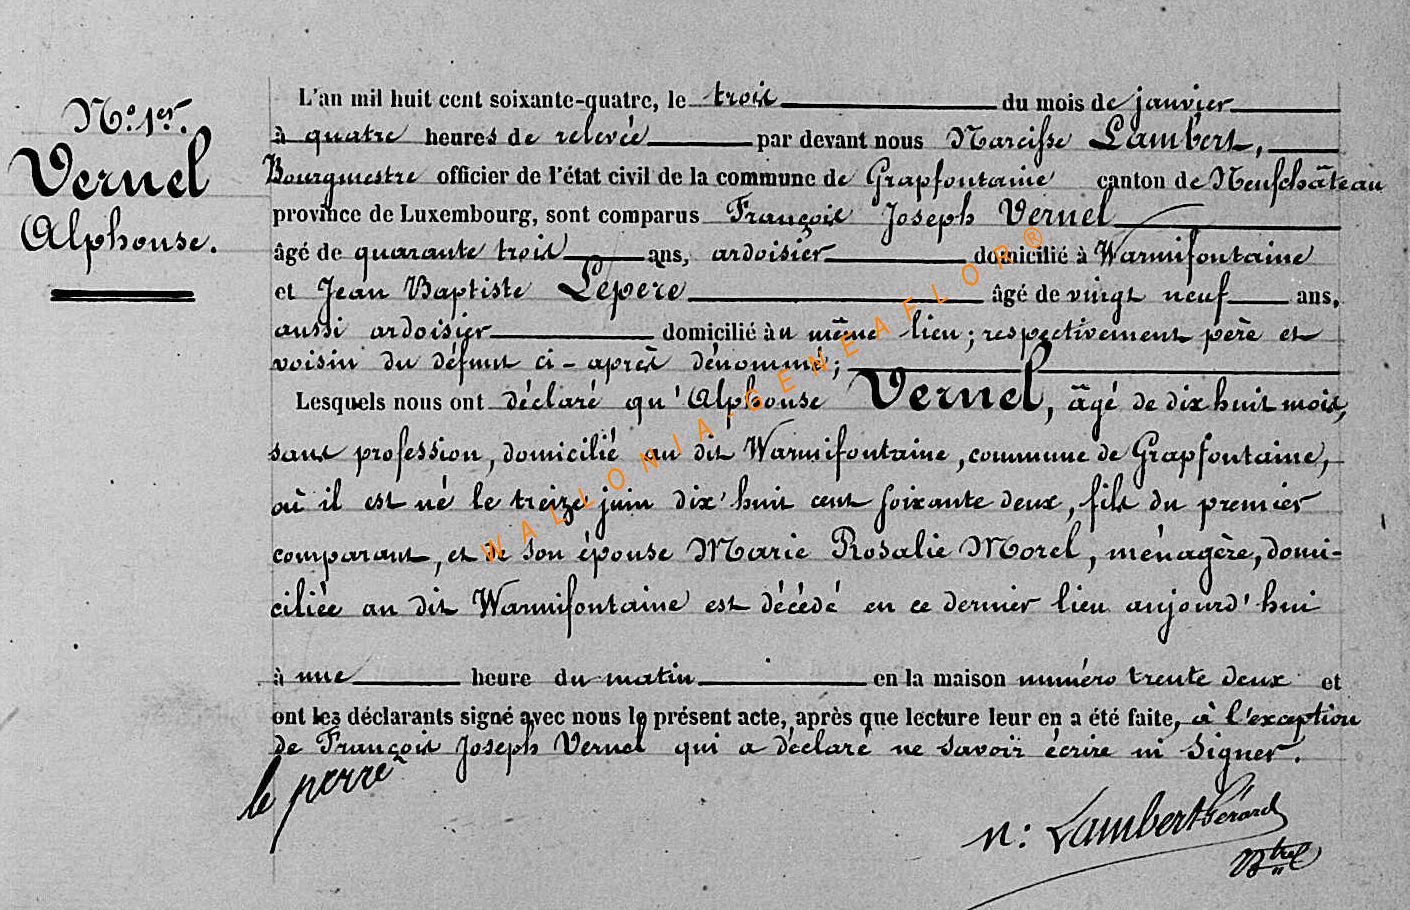 N.° 1er.
Vernel
Alphonse.
L'an mil huit cent soixante-quatre, le trois du mois de janvier
à quatre heures de relevée par devant nous Narcisse Lambert,
Bourgmestre officier de l'état civil de la commune de Grapfontaine canton de Neufchâteau
province de Luxembourg, sont comparus François Joseph Vernel
âgé de quarante trois ans, ardoisier domicilié à Warmifontaine
et Jean Baptiste Lepère âgé de vingt neuf ans,
aussi ardoisier domicilié au même lieu; respectivement père et
voisin du défunt ci-après dénommé;
Lesquels nous ont déclaré qu'Alphonse Vernel, âgé de dix huit mois,
sans profession, domicilié au dit Warmifontaine, commune de Grapfontaine,
où il est né le treize juin dix'huit cent soixante deux, fils du premier
comparant, et de son épouse Marie Rosalie Morel, ménagère, domi-
ciliée au dit Warmifontaine est décédé en ce dernier lieu aujourd'hui
à une heure du matin en la maison numéro trente deux et
ont les déclarants signé avec nous le présent acte, après que lecture leur en a été faite, à l'exception
de François Joseph Vernel qui a déclaré ne savoir écrire ni signer.
le perre
N: Lambert Gérard
WALLONIA-GENEAFLOR®